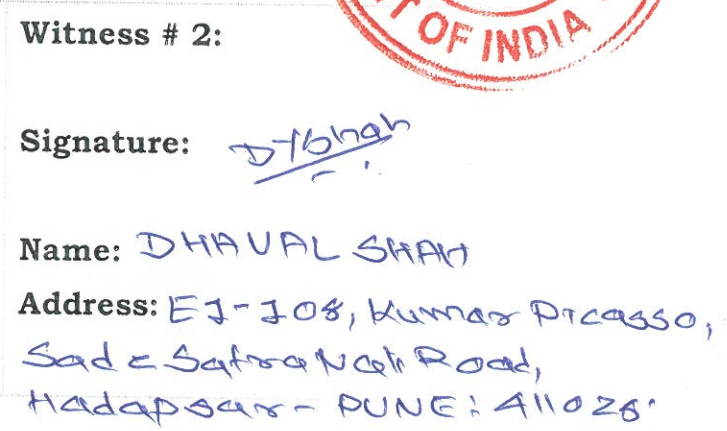 OF INDIA
Witness # 2:
Signature: DYShah
Name: DHAVAL SHAH
Address: E1-108, Kumar Picasso,
Sade Satra Nali Road,
Hadapsar - PUNE: 411028.